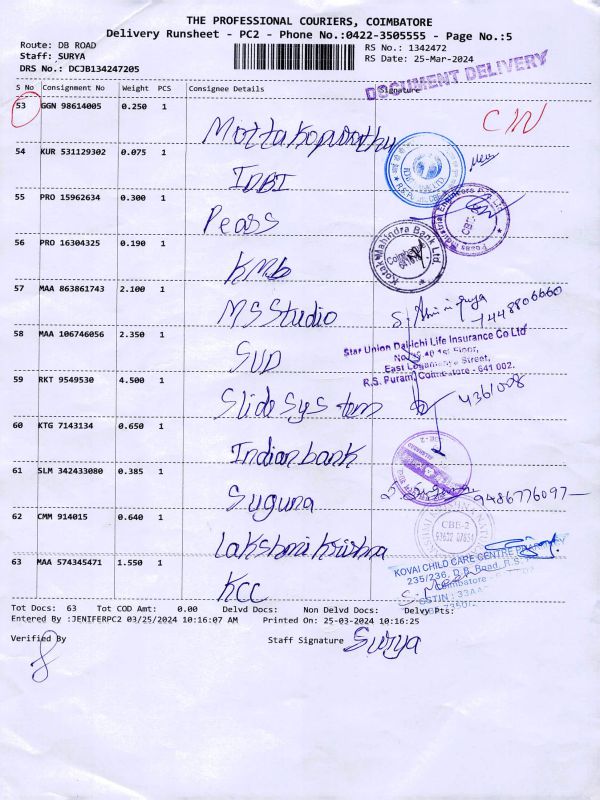 THE PROFESSIONAL COURIERS, COIMBATORE
Delivery Runsheet - PC2 - Phone No.:0422-3505555 - Page No.:5
Route: DB ROAD
Staff: SURYA
DRS No.: DCJB134247205
RS No.: 1342472
RS Date: 25-Mar-2024
DOCUMENT DELIVERY
S No Consignment No Weight PCS Consignee Details Signature
53 GGN 98614005 0.250 1
54 KUR 531129302 0.075 1 IDBI
55 PRO 15962634 0.300 1 Pears
56 PRO 16304325 0.190 1 KMb
Kotak Mahindra Bank Ltd.
57 MAA 863861743 2.100 1 MS Studio
7448806660
58 MAA 106746056 2.350 1 SUD
Star Union Dai-ichi Life Insurance Co Ltd
R.S. Puram, Coimbatore - 641 002.
59 RKT 9549530 4.500 1 Slide System
4361008
60 KTG 7143134 0.650 1 Indian bank
61 SLM 342433080 0.385 1 Suguna
9486776097
62 CMM 914015 0.640 1 Lakshmi Krishna
CBE-2
63 MAA 574345471 1.550 1 KCC
KOVAI CHILD CARE CENTRE
235/236, D.B. Road, R.S.
Coimbatore
Tot Docs: 63 Tot COD Amt: 0.00 Delvd Docs: Non Delvd Docs: Delvy Pts:
Entered By :JENIFERPC2 03/25/2024 10:16:07 AM Printed On: 25-03-2024 10:16:25
Verified By
Staff Signature Surya